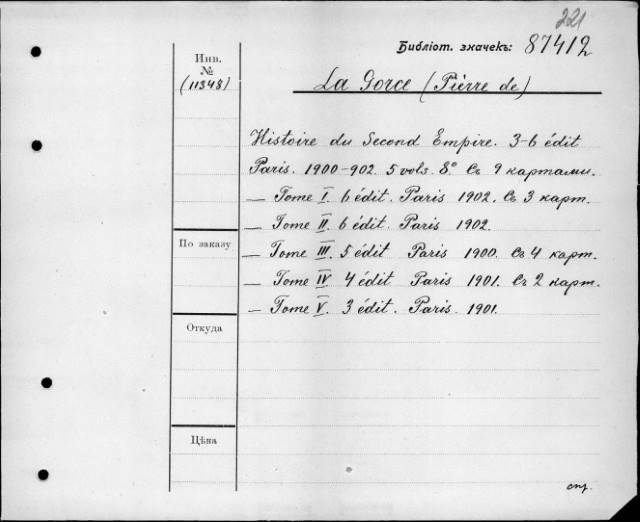 221
Библiот. значекъ: 87412
Инв.
№
(11348)
La Gorce (Pierre de)
Histoire du Second Empire. 3-6 édit
Paris. 1900-902. 5 vols. 8.° Съ 9 картами.
— Tome I. 6 édit. Paris 1902. Съ 3 карт.
— Tome II. 6 édit. Paris 1902.
По заказу
— Tome III. 5 édit Paris 1900. Съ 4 карт.
— Tome IV 4 édit Paris 1901. Съ 2 карт.
— Tome V. 3 édit. Paris. 1901.
Откуда
Цѣна